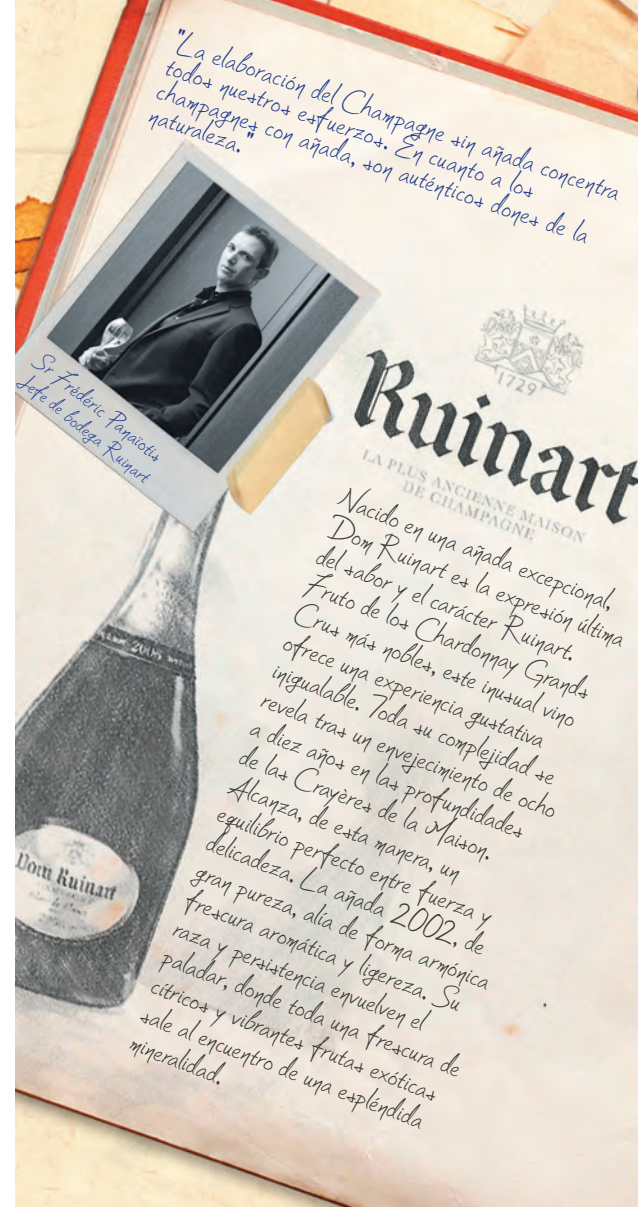 "La elaboración del Champagne sin añada concentra
todos nuestros esfuerzos. En cuanto a los
champagnes con añada, son auténticos dones de la
naturaleza."
Sr Frédéric Panaïotis
Jefe de bodega Ruinart
1729
Ruinart
LA PLUS ANCIENNE MAISON
DE CHAMPAGNE
Nacido en una añada excepcional,
Dom Ruinart es la expresión última
del sabor y el carácter Ruinart.
Fruto de los Chardonnay Grands
Crus más nobles, este inusual vino
ofrece una experiencia gustativa
inigualable. Toda su complejidad se
revela tras un envejecimiento de ocho
a diez años en las profundidades
de las Crayères de la Maison.
Alcanza, de esta manera, un
equilibrio perfecto entre fuerza y
delicadeza. La añada 2002, de
gran pureza, alía de forma armónica
frescura aromática y ligereza. Su
raza y persistencia envuelven el
paladar, donde toda una frescura de
cítricos y vibrantes frutas exóticas
sale al encuentro de una espléndida
mineralidad.
Dom Ruinart